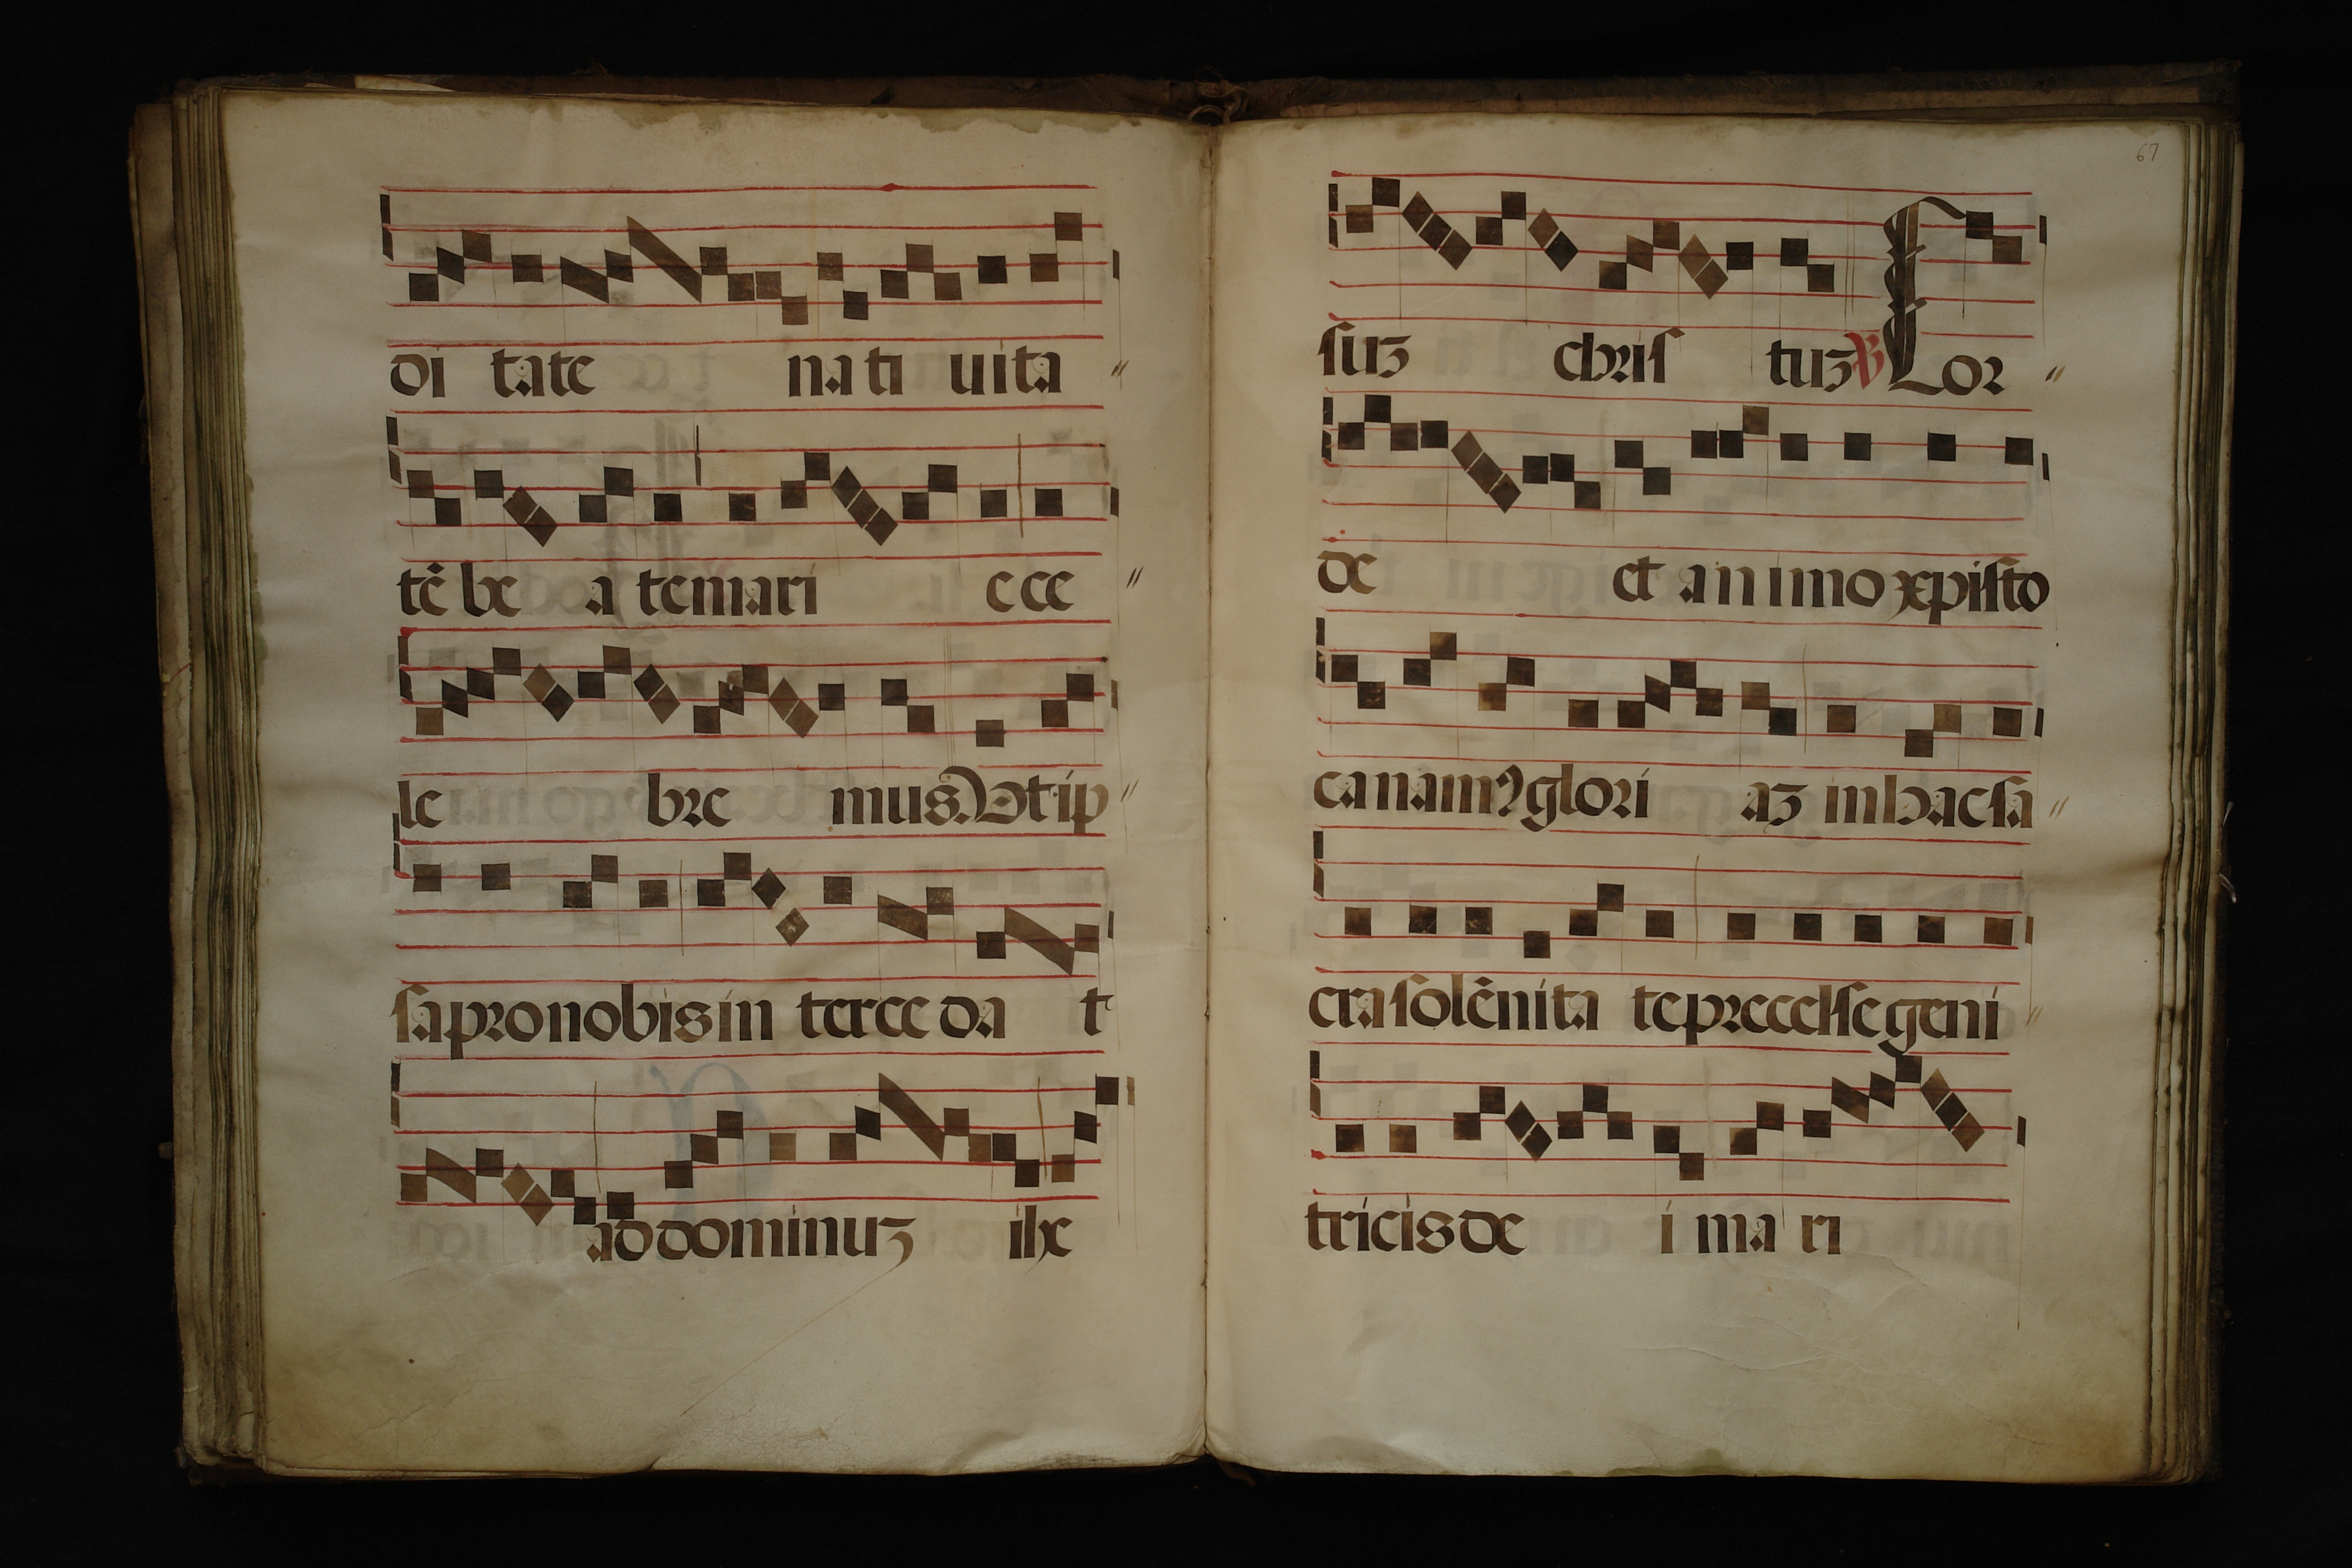 di tate na ti uita //
tē be a temari e ce //
le bre mus. Vt ip //
sa pro nobis in terce da t
ad dominuz ihe
67
suz chris tuz ℣ Cor //
de et animo xpisto
canamꝰ glori az in hac sa //
cra solēnita te precelse geni //
tricis de i ma ri